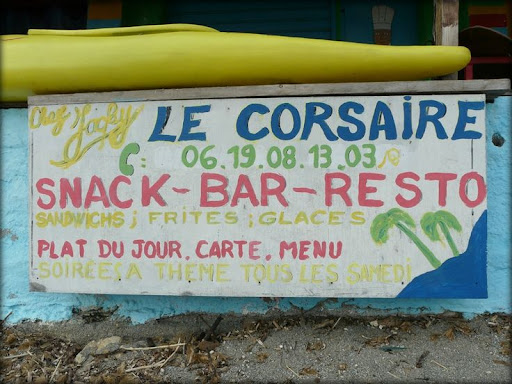 Chez Jacky LE CORSAIRE
: 06.19.08.13.03
SNACK-BAR-RESTO
SANDWICHS; FRITES; GLACES
PLAT DU JOUR. CARTE. MENU
SOIRÉES A THEME TOUS LES SAMEDI